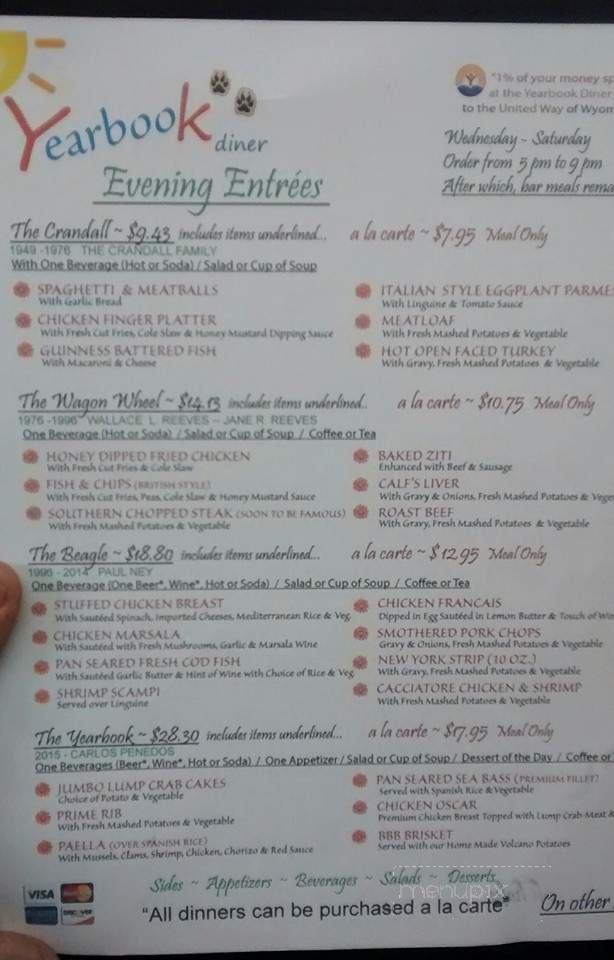 Yearbook
diner
Evening Entrées
"1% of your money
at the Yearbook Diner
to the United Way of
Wednesday - Saturday
Order from 5 pm to 9 pm
After which, bar meals
The Crandall ~ $9.43 includes items underlined... a la carte ~ $7.95 Meal Only
1949 -1976 THE CRANDALL FAMILY
With One Beverage (Hot or Soda) / Salad or Cup of Soup
SPAGHETTI & MEATBALLS
With Garlic Bread
CHICKEN FINGER PLATTER
With Fresh Cut Fries, Cole Slaw & Honey Mustard Dipping Sauce
GUINNESS BATTERED FISH
With Macaroni & Cheese
ITALIAN STYLE EGGPLANT
With Linguine & Tomato Sauce
MEATLOAF
With Fresh Mashed Potatoes & Vegetable
HOT OPEN FACED TURKEY
With Gravy, Fresh Mashed Potatoes & Vegetable
The Wagon Wheel ~ $14.13 includes items underlined.. a la carte ~ $10.75 Meal Only
1976 -1996 WALLACE L. REEVES – JANE R. REEVES
One Beverage (Hot or Soda) / Salad or Cup of Soup / Coffee or Tea
HONEY DIPPED FRIED CHICKEN
With Fresh Cut Fries & Cole Slaw
FISH & CHIPS (BRITISH STYLE)
With Fresh Cut Fries, Peas, Cole Slaw & Honey Mustard Sauce
SOUTHERN CHOPPED STEAK (SOON TO BE FAMOUS)
With Fresh Mashed Potatoes & Vegetable
BAKED ZITI
Enhanced with Beef & Sausage
CALF'S LIVER
With Gravy & Onions, Fresh Mashed Potatoes &
ROAST BEEF
With Gravy, Fresh Mashed Potatoes & Vegetable
The Beagle ~ $18.80 includes items underlined... a la carte ~ $12.95 Meal Only
1996 - 2014 PAUL NEY
One Beverage (One Beer*, Wine*, Hot or Soda) / Salad or Cup of Soup / Coffee or Tea
STUFFED CHICKEN BREAST
With Sautéed Spinach, Imported Cheeses, Mediterranean Rice & Veg.
CHICKEN MARSALA
With Sautéed with Fresh Mushrooms, Garlic & Marsala Wine
PAN SEARED FRESH COD FISH
With Sautéed Garlic Butter & Hint of Wine with Choice of Rice & Veg
SHRIMP SCAMPI
Served over Linguine
CHICKEN FRANCAIS
Dipped in Egg Sautéed in Lemon Butter & Touch of
SMOTHERED PORK CHOPS
Gravy & Onions, Fresh Mashed Potatoes & Vegetable
NEW YORK STRIP (10 OZ.)
With Gravy, Fresh Mashed Potatoes & Vegetable
CACCIATORE CHICKEN & SHRIMP
With Fresh Mashed Potatoes & Vegetable
The Yearbook ~ $28.30 includes items underlined... a la carte ~ $17.95 Meal Only
2015 - CARLOS PENEDOS
One Beverages (Beer*, Wine*, Hot or Soda) / One Appetizer / Salad or Cup of Soup / Dessert of the Day / Coffee or
JUMBO LUMP CRAB CAKES
Choice of Potato & Vegetable
PRIME RIB
With Fresh Mashed Potatoes & Vegetable
PAELLA (OVER SPANISH RICE)
With Mussels, Clams, Shrimp, Chicken, Chorizo & Red Sauce
PAN SEARED SEA BASS (PREMIUM FILLET)
Served with Spanish Rice & Vegetable
CHICKEN OSCAR
Premium Chicken Breast Topped with Lump Crab-Meat &
BBB BRISKET
Served with our Home Made Volcano Potatoes
Sides ~ Appetizers ~ Beverages ~ Salads ~ Desserts
menupix
VISA MasterCard
DISCOVER
"All dinners can be purchased a la carte"
On other